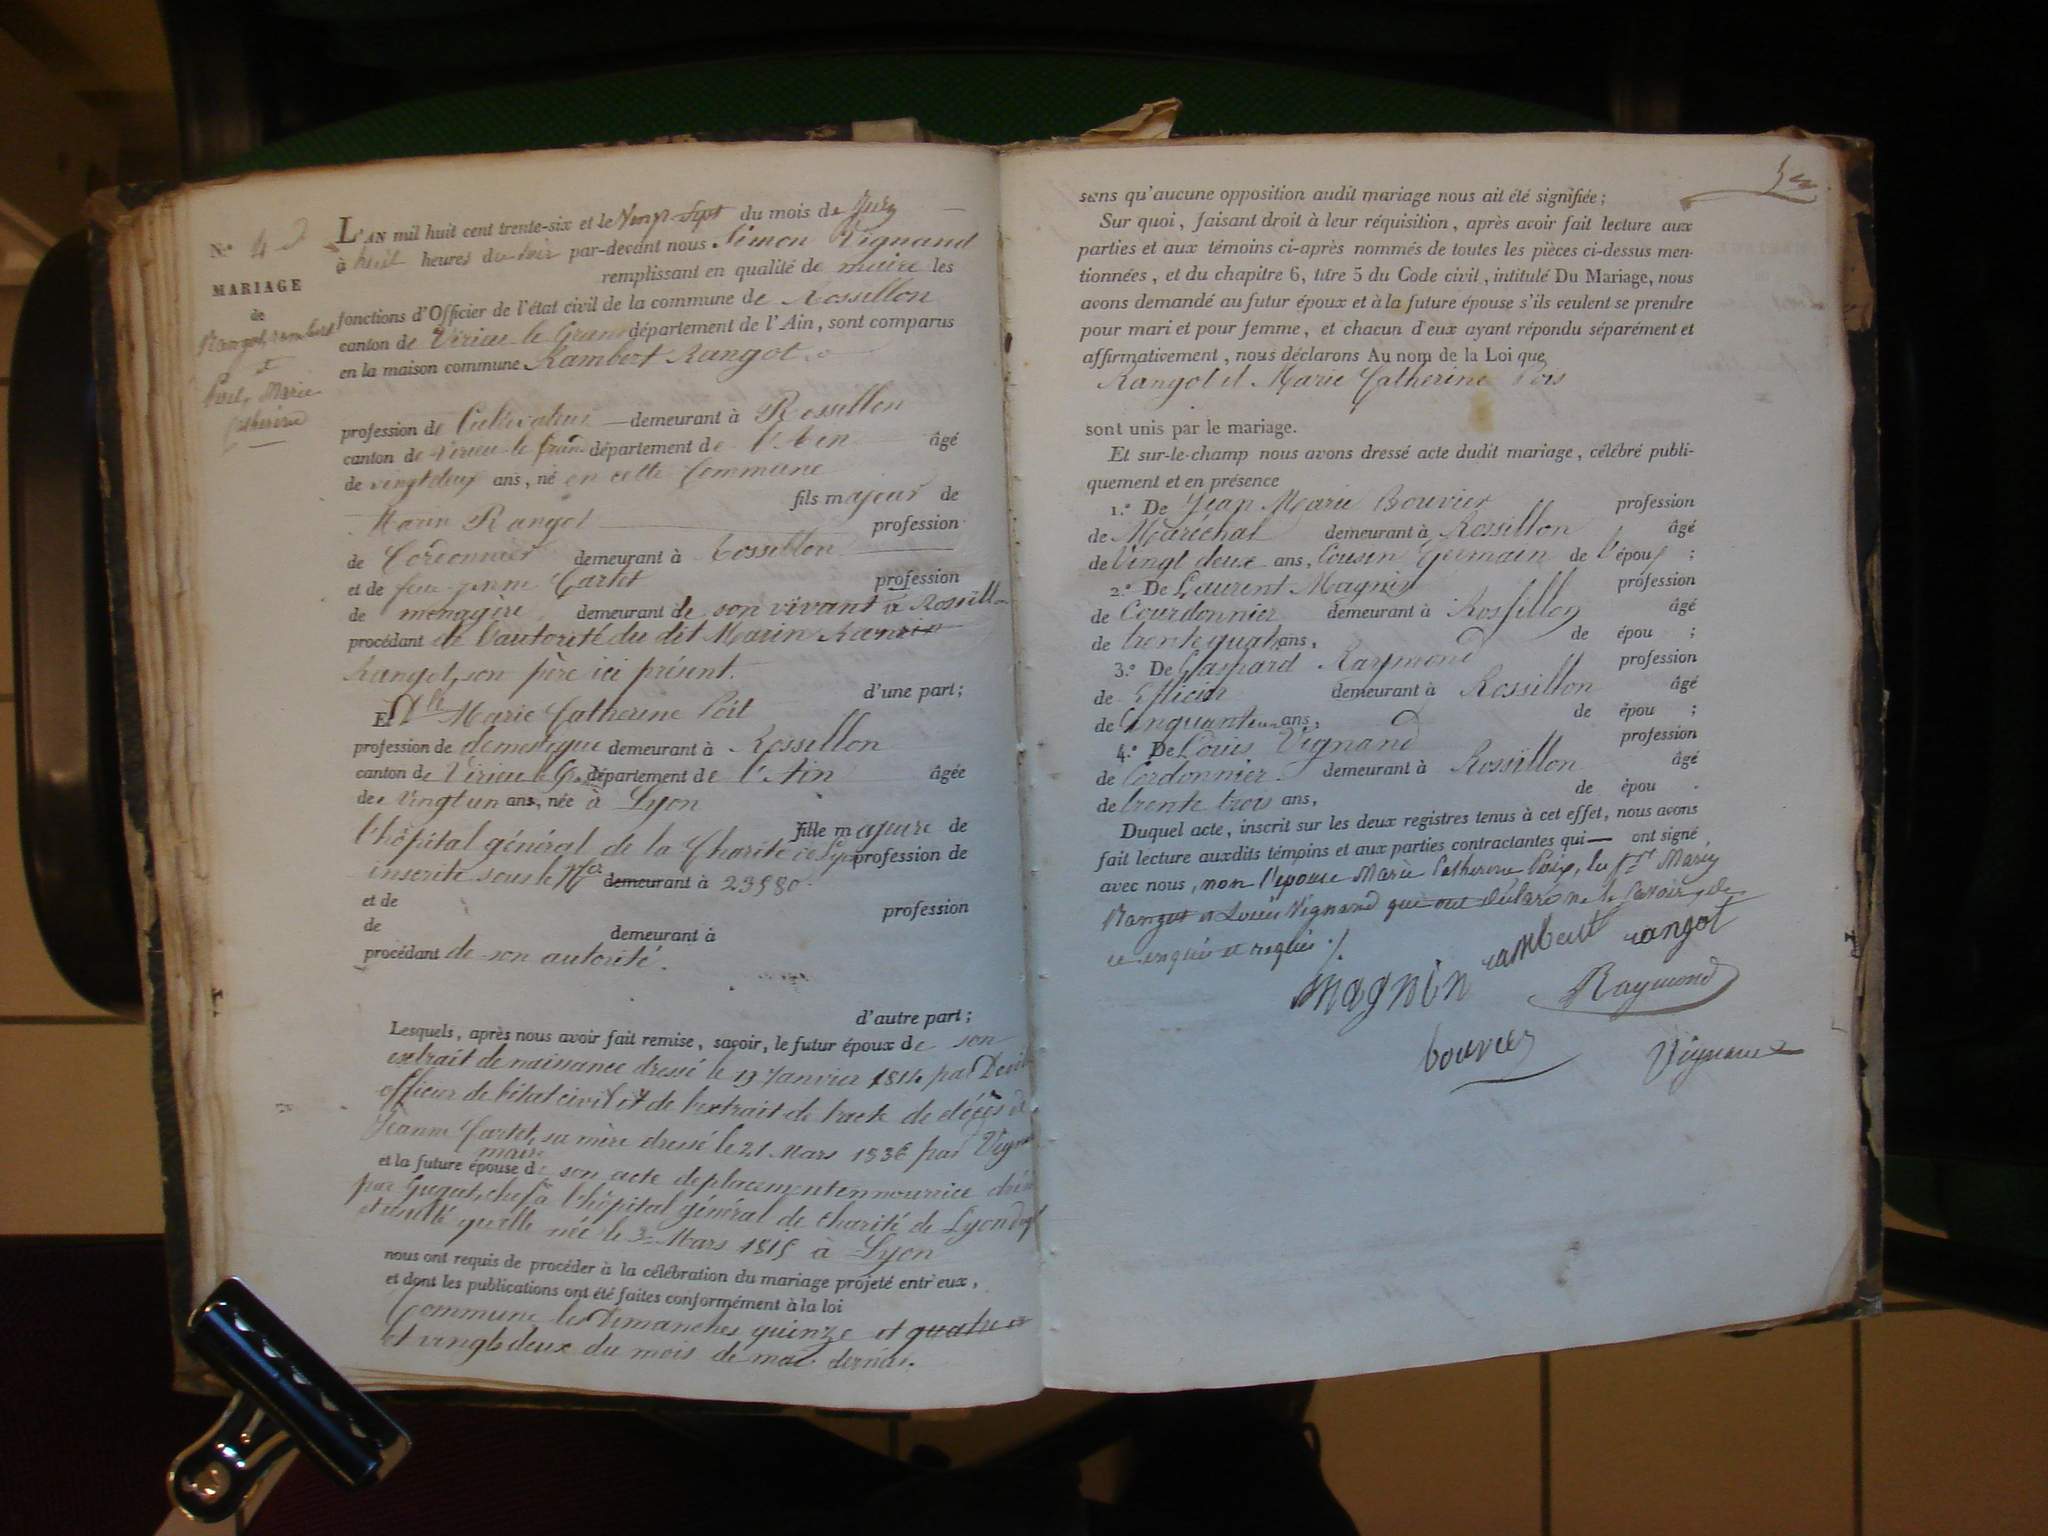 N.° 4
MARIAGE
de
Rangot, rambert
et
Marie
Catherine
L'AN mil huit cent trente-six et le Vingt-Sept du mois de Juin
à huit heures du soir par-devant nous Simon Vignand
remplissant en qualité de maire les
fonctions d'Officier de l'état civil de la commune de Rossillon
canton de Virieu le Grand département de l'Ain, sont comparus
en la maison commune Rambert Rangot
profession de Cultivateur demeurant à Rossillon
canton de Virieu le grand département de l'Ain âgé
de vingt deux ans, né en cette Commune
fils majeur de
Marin Rangot profession
de Cordonnier demeurant à Rossillon
et de feue jenne Cartet profession
de menagère demeurant de son vivant à Rossillon
procédant de l'autorité du dit Marin
Rangot, son père ici présent.
d'une part;
Et Dlle Marie Catherine Poit
profession de domestique demeurant à Rossillon
canton de Virieu le Grand département de l'Ain âgée
de vingt un ans, née à Lyon
fille majeure de
l'hôpital général de la Charité de Lyon profession de
inscrite sous le No demeurant à 23580
et de profession
de demeurant à
procédant de son autorité.
d'autre part;
Lesquels, après nous avoir fait remise, savoir, le futur époux de son
extrait de naissance dressé le 19 Janvier 1814 par
officier de l'état civil et de l'extrait de l'acte de décès de
Jeanne Cartet, sa mère dressé le 21 Mars 1836 par Vignand
maire
et la future épouse de son acte de placement en nourrice
par chef à l'hôpital général de charité de Lyon
qu'elle née le 3 Mars 1815 à Lyon
nous ont requis de procéder à la célébration du mariage projeté entr'eux,
et dont les publications ont été faites conformément à la loi
Commune les Dimanches quinze et quatre et
et vingt deux du mois de mai dernier.
sans qu'aucune opposition audit mariage nous ait été signifiée;
Sur quoi, faisant droit à leur réquisition, après avoir fait lecture aux
parties et aux témoins ci-après nommés de toutes les pièces ci-dessus men-
tionnées, et du chapitre 6, titre 5 du Code civil, intitulé Du Mariage, nous
avons demandé au futur époux et à la future épouse s'ils veulent se prendre
pour mari et pour femme, et chacun d'eux ayant répondu séparément et
affirmativement, nous déclarons Au nom de la Loi que
Rangot et Marie Catherine Pois
sont unis par le mariage.
Et sur-le-champ nous avons dressé acte dudit mariage, célébré publi-
quement et en présence
1.° De Jean Marie Bouvier profession
de Maréchal demeurant à Rossillon âgé
de Vingt deux ans, Cousin Germain de l'époux;
2.° De Laurent Magnin profession
de Courdonnier demeurant à Rossillon âgé
de trente quatr ans, de épou ;
3.° De Gaspard Raymond profession
de demeurant à Rossillon âgé
de Cinquante un ans, de épou ;
4.° De Louis Vignand profession
de Cordonnier demeurant à Rossillon âgé
de trente trois ans, de épou .
Duquel acte, inscrit sur les deux registres tenus à cet effet, nous avons
fait lecture auxdits témoins et aux parties contractantes qui ont signé
avec nous, non l'épouse Marie Catherine Poix, les Srs Marin
Rangot et Louis Vignand qui ont déclaré ne le savoir, de
ce enquis et requis
rambert rangot
magnin
Raymond
bouvier
Vignand